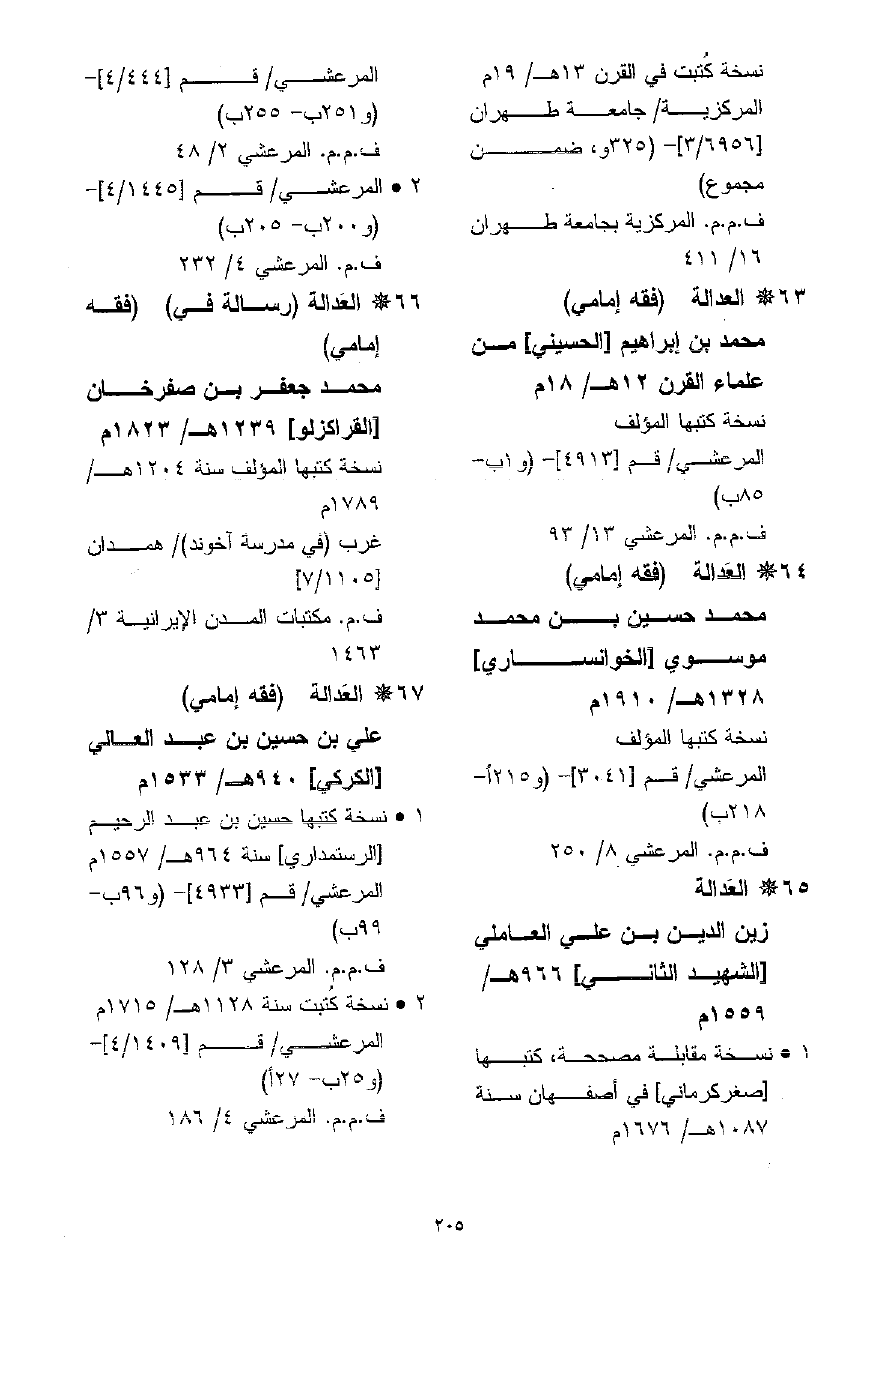 نسخة كُتبت في القرن ١٣هـ/ ١٩م
المركزية/ جامعة طهران
[٣/٦٩٥٦]- (٣٢٥و، ضمن
مجموع)
ف.م.م. المركزية بجامعة طهران
١٦/ ٤١١
٦٣* العدالة (فقه إمامي)
محمد بن إبراهيم [الحسيني] من
علماء القرن ١٢هـ/ ١٨م
نسخة كتبها المؤلف
المرعشي/ قم [٤٩١٣]- (و١ب-
٨٥ب)
ف.م.م. المرعشي ١٣/ ٩٣
٦٤* العَدالة (فقه إمامي)
محمد حسين بن محمد
موسوي [الخوانساري]
١٣٢٨هـ/ ١٩١٠م
نسخة كتبها المؤلف
المرعشي/ قم [٣٠٤١]- (و٢١٥أ-
٢١٨ب)
ف.م.م. المرعشي ٨/ ٢٥٠
٦٥* العَدالة
زين الدين بن علي العاملي
[الشهيد الثاني] ٩٦٦هـ/
١٥٥٩م
١ • نسخة مقابلة مصححة، كتبها
[صغركرماني] في أصفهان سنة
١٠٨٧هـ/ ١٦٧٦م
المرعشي/ قم [٤/٤٤٤]-
(و٢٥١ب- ٢٥٥ب)
ف.م.م. المرعشي ٢/ ٤٨
٢ • المرعشي/ قم [٤/١٤٤٥]-
(و٢٠٠ب- ٢٠٥ب)
ف.م. المرعشي ٤/ ٢٣٢
٦٦* العَدالة (رسالة في) (فقه
إمامي)
محمد جعفر بن صفرخان
[القراكزلو] ١٢٣٩هـ/ ١٨٢٣م
نسخة كتبها المؤلف سنة ١٢٠٤هـ/
١٧٨٩م
غرب (في مدرسة آخوند)/ همدان
[٧/١١٠٥]
ف.م. مكتبات المدن الإيرانية ٣/
١٤٦٣
٦٧* العَدالة (فقه إمامي)
علي بن حسين بن عبد العالي
[الكركي] ٩٤٠هـ/ ١٥٣٣م
١ • نسخة كتبها حسين بن عبد الرحيم
[الرستمداري] سنة ٩٦٤هـ/ ١٥٥٧م
المرعشي/ قم [٤٩٣٣]- (و٩٦ب-
٩٩ب)
ف.م.م. المرعشي ٣/ ١٢٨
٢ • نسخة كُتبت سنة ١١٢٨هـ/ ١٧١٥م
المرعشي/ قم [٤/١٤٠٩]-
(و٢٥ب- ٢٧أ)
ف.م.م. المرعشي ٤/ ١٨٦
٢٠٥